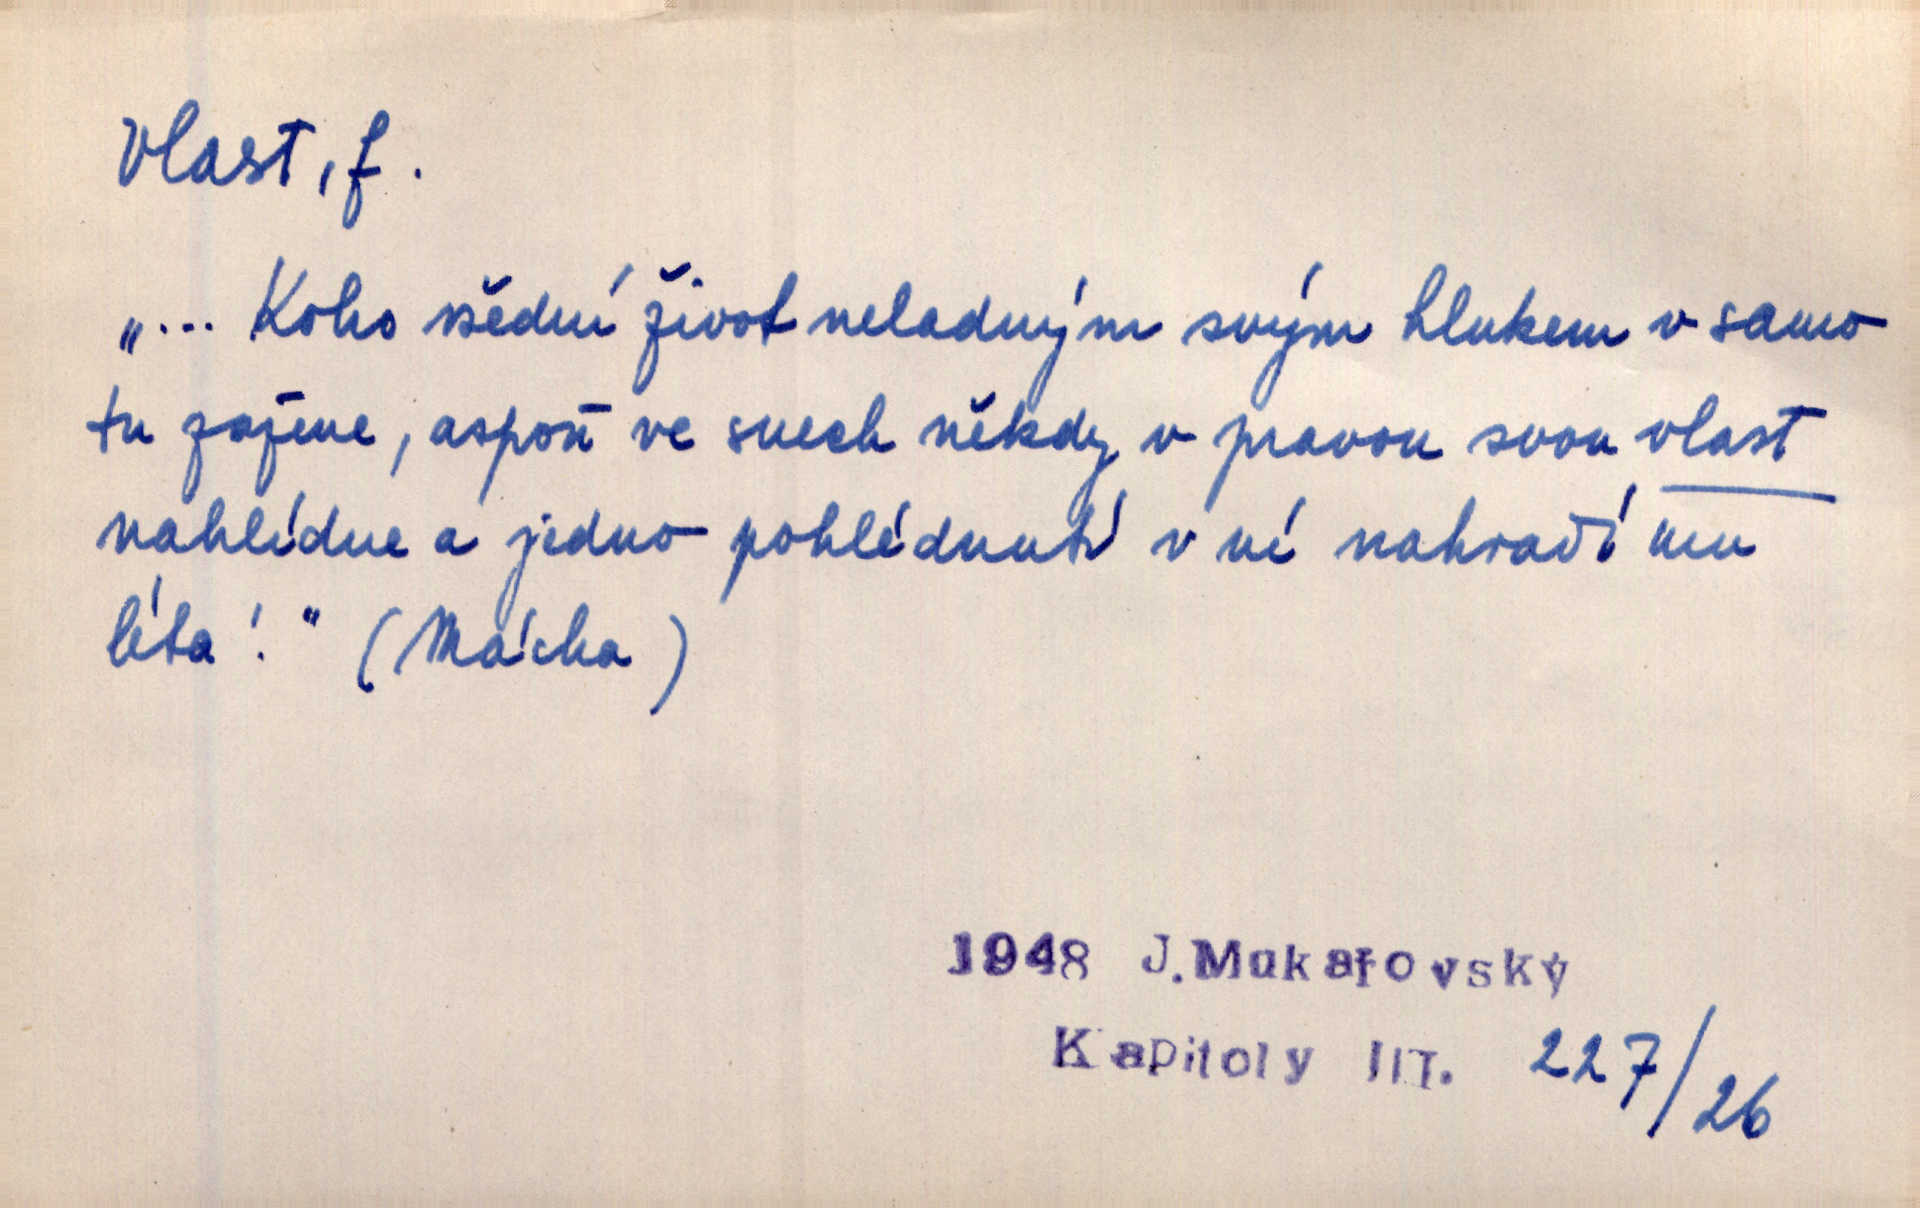 Vlast, f.
„... Koho všední život neladným svým hlukem v samo
tu zažene, aspoň ve snech někdy v pravou svou vlast
nahlédne a jedno pohlédnutí v ní nahradí mu
léta!" (Mácha)
1948 J.Mukařovský
Kapitoly III. 227/26